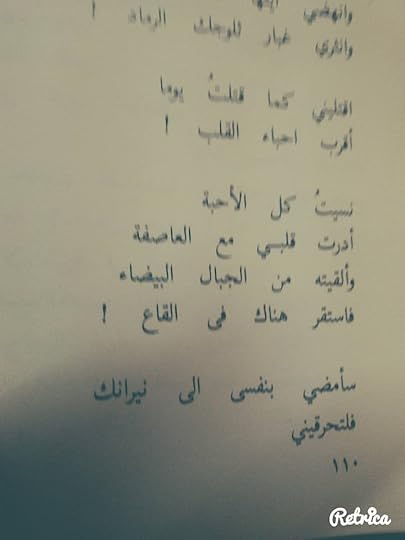 وانهضي ايتها
وانثري غبار للوجك الرماد !
اقتليني كما قتلتُ يوما
أقرب احباء القلب !
نسيتُ كل الأحبة
أدرت قلبي مع العاصفة
وألقيته من الجبال البيضاء
فاستقر هناك فى القاع !
سأمضي بنفسى الى نيرانك
فلتحرقيني
١١٠
Retrica